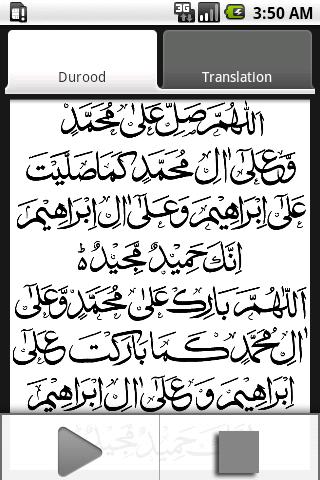 3G
3:50 AM
Durood
Translation
اَللّٰهُمَّ صَلِّ عَلٰی مُحَمَّدٍ
وَّعَلٰٓی اٰلِ مُحَمَّدٍ كَمَا صَلَّیْتَ
عَلٰٓی اِبْرَاهِیْمَ وَعَلٰٓی اٰلِ اِبْرَاهِیْمَ
اِنَّكَ حَمِیْدٌ مَّجِیْدٌ ؕ
اَللّٰهُمَّ بَارِكْ عَلٰی مُحَمَّدٍ وَّعَلٰٓی
اٰلِ مُحَمَّدٍ كَمَا بَارَكْتَ عَلٰٓی
اِبْرَاهِیْمَ وَ عَلٰٓی اٰلِ اِبْرَاهِیْمَ
اِنَّكَ حَمِیْدٌ مَّجِیْدٌ